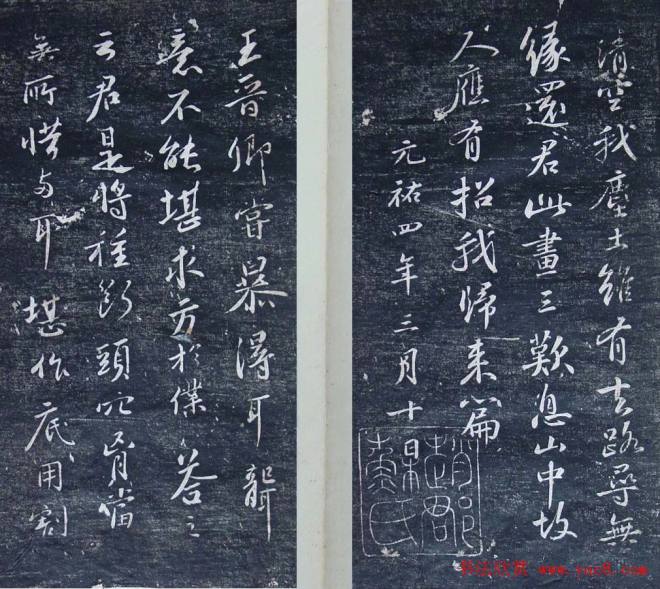 清空我塵土雖有去路尋無
緣還君此畫三歎息山中故
人應有招我歸來篇
元祐四年三月十
趙郡
蘇氏
王晉卿嘗暴得耳聾
意不能堪求方於僕答之
云君是將種斷頭穴胷當
無所惜兩耳堪作底用割
书法欣赏 www.yac8.com